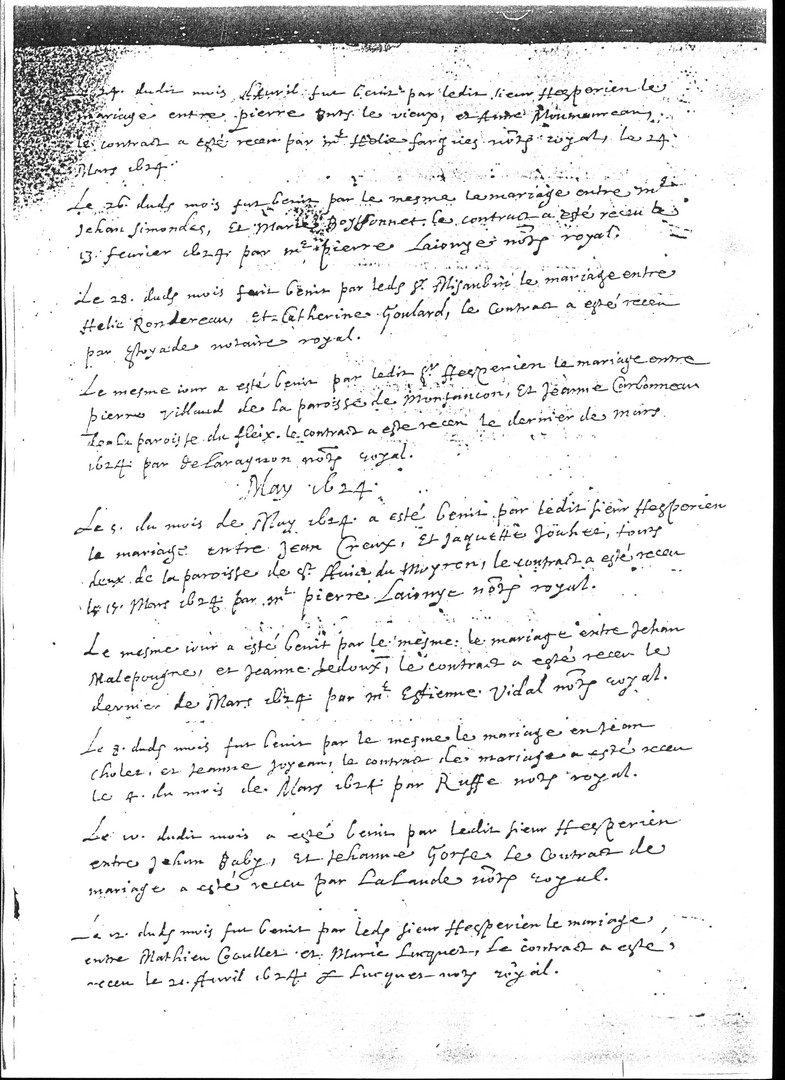 Le 24. dudit mois d'Auril fut benit par ledit sieur Hesperien le
mariage entre pierre le vieux, et Anne
le contract a esté receu par mre Helie farques notre royal, le 24
Mars 1624.
Le 26. dudt mois fut benit par le mesme le mariage entre mre
Jehan Simondes, Et Marie Boyssonnet, le contract a esté receu le
13. feurier 1624. par mre pierre Laionye notre royal.
Le 28. dudt mois fut benit par ledt sr Misaubin le mariage entre
Helie Rondereau, Et Catherine Goulard, le Contract a esté receu
par Estoyade notaire royal.
Le mesme iour a esté benit par ledit sr Hesperien le mariage entre
pierre Villaud de la paroisse de Montancon, Et Jeanne Carbonneau
de la paroisse du fleix. le contract a esté receu le dernier de mars
1624 par de Laragnon notre royal.
May 1624.
Le 5. du mois de May 1624. a esté benit par ledit sieur Hesperien
le mariage entre Jean Creux, Et Jaquette Jouhet, tous
deux de la paroisse de St du Moyren, le contract a esté receu
le 15. Mars 1624 par mre pierre Laionye notre royal.
Le mesme iour a esté benit par le mesme. le mariage entre Jehan
Malepougne, et Jeanne Ledoux, le contract a esté receu le
dernier de Mars 1624 par mre Estienne Vidal notre royal.
Le 8. dudt mois fut benit par le mesme le mariage en Jean
Cholet, et Jeanne Joyeau, le contract de mariage a esté receu
le 4. du mois de Mars 1624 par Ruffe notre royal.
Le 10. dudit mois a esté benit par ledit sieur Hesperien
entre Jehan Baby, Et Jehanne Gorse Le Contract de
mariage a esté receu par Lalande notre royal.
Le 12. dudt mois fut benit par ledt sieur Hesperien le mariage
entre Mathieu Gaullet et Marie Lucquet, Le contract a esté
receu le 21. Avril 1624 Lucques notre royal.